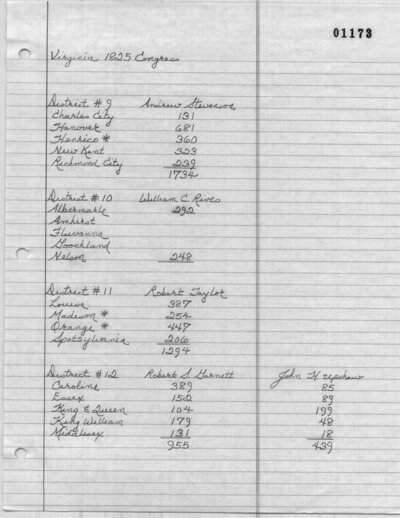 01173
Virginia 1825 Congress
District #9 Andrew Stevenson
Charles City 131
Hanover 681
Henrico * 360
New Kent 323
Richmond City 239
1734
District #10 William C. Rives
Albermarle 292
Amherst
Fluvanna
Goochland
Nelson 248
District #11 Robert Taylor
Louisa 387
Madison * 254
Orange * 447
Spotsylvania 206
1294
District #12 Robert S. Garnett John H. upshaw
Caroline 389 85
Essex 152 89
King & Queen 104 199
King William 179 48
Middlesex 131 18
955 439